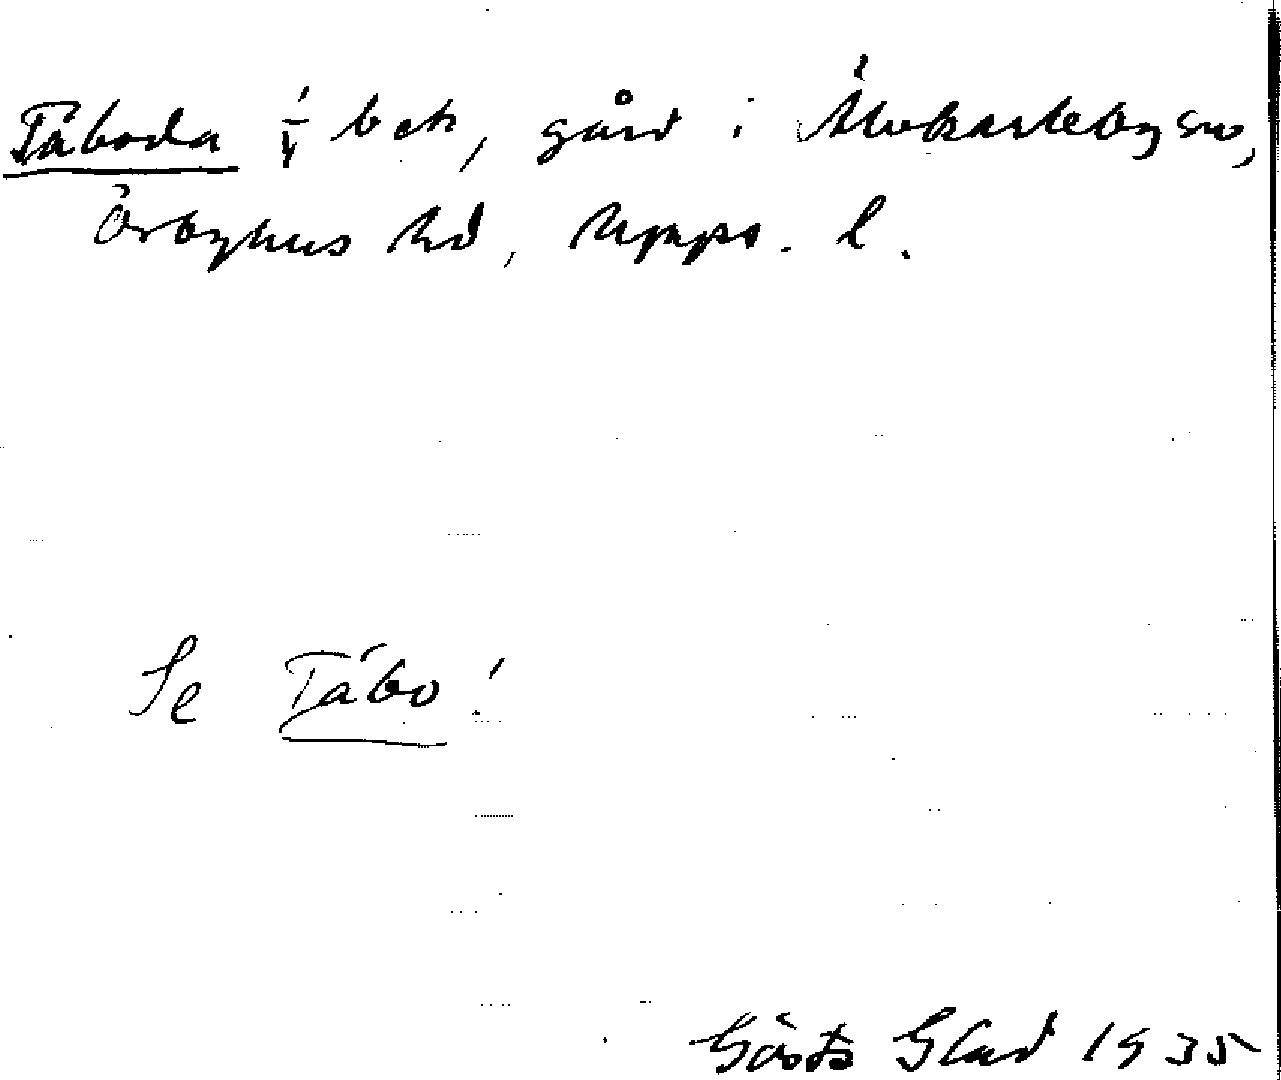 Tåboda ⅟ bek, gård i Älvkarleby sn,
Örbyhus hd, Upps. l.
Se Tåbo!
Gösta Glad 1935